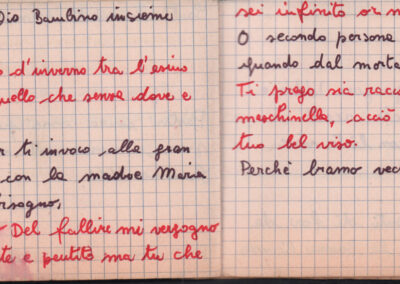 Dio Bambino insieme
d'inverno tra l'asino
quello che senza dove e
ti invoco alla gran
con la madre Maria
bisogno,
Del fallire mi vergogno
e pentito ma tu che
sei infinito or
O secondo persona
quando dal morta
Ti prego sia racc
meschinella, acciò
tuo bel viso.
Perchè bramo ved